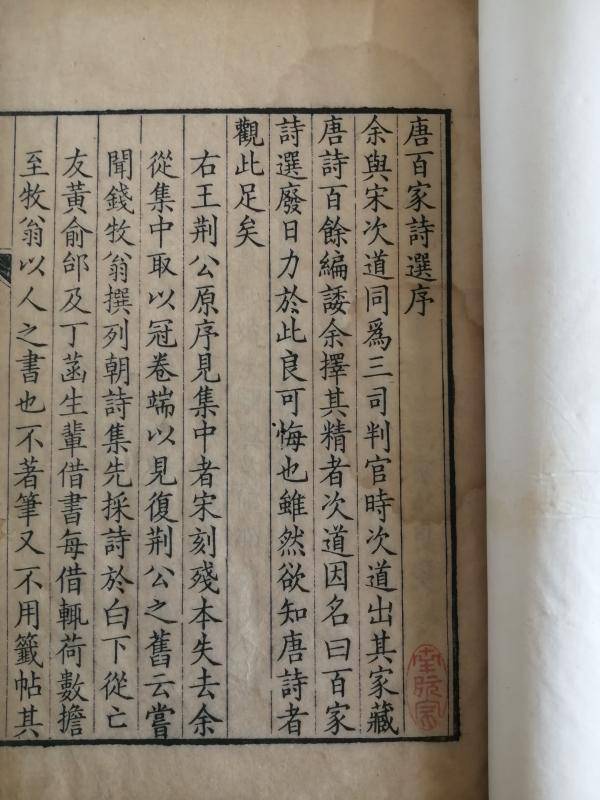 唐百家詩選序
余與宋次道同爲三司判官時次道出其家藏
唐詩百餘編諉余擇其精者次道因名曰百家
詩選廢日力於此良可悔也雖然欲知唐詩者
觀此足矣
右王荆公原序見集中者宋刻殘本失去余
從集中取以冠卷端以見復荆公之舊云嘗
聞錢牧翁撰列朝詩集先採詩於白下從亡
友黃俞邰及丁菡生輩借書每借輒荷數擔
至牧翁以人之書也不著筆又不用籤帖其